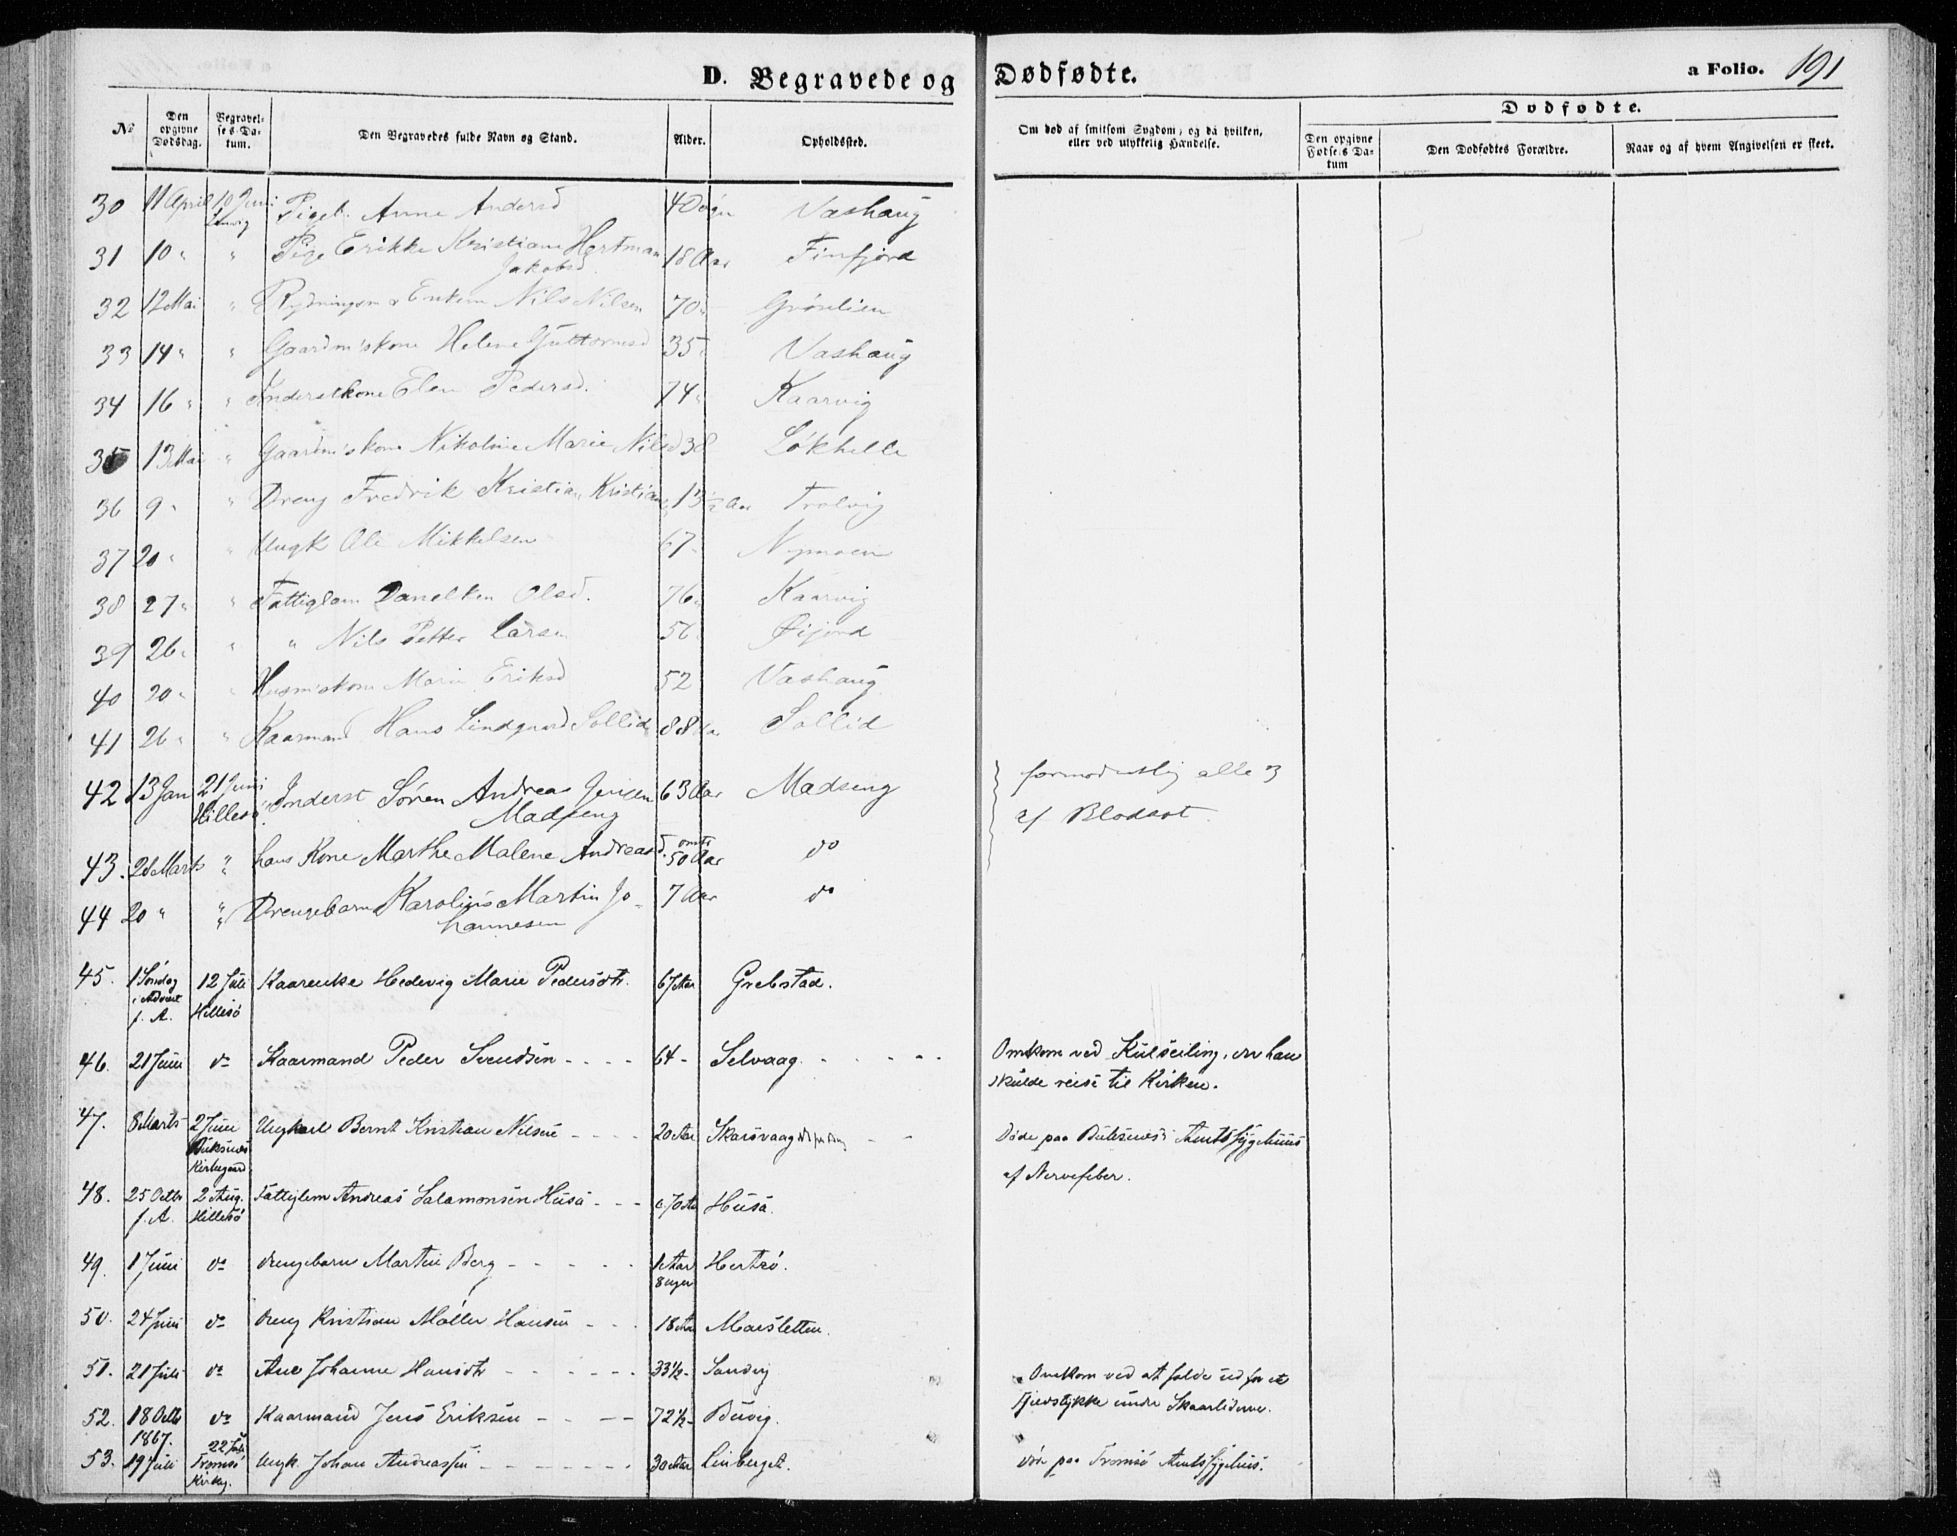 D. Begravede og Dødfødte.
a Folio. 191
Dødfødte.
№
Den opgivne Dødsdag.
Begravelses Datum.
Den Begravedes fulde Navn og Stand.
Alder.
Opholdssted.
Om død af smitsom Sygdom, og da hvilken, eller ved ulykkelig Hændelse.
Den opgivne Fødsels Datum
Den Dødfødtes Forældre.
Naar og af hvem Angivelsen er skeet.
30 11 April 10 Juni Anne Andersd 4 Døgn Vashaug
31 10 " " Pige Erikke Kristiane Hartman 18 Aar Finfjord
Jakobsd.
32 12 Mai " Nils Nilsen 70 " Grønlien
33 14 " " Gaardm'skone Helene Guttormsd 35 " Vashaug
34 16 " " Inderstkone Elen Pedersd. 74 " Kaarvig
35 13 Mai " Gaardm'skone Nikoline Marie Nilsd 38 Løkhelle
36 9 " " Dreng Fredrik Kristian Kristians 13 Aar Trolvig
37 20 " " Ungk Ole Mikkelsen 67 " Nymoen
38 27 " " Fattiglem Olsd. 76 " Kaarvig
39 26 " " " Nils Petter Larsen 56 Øijord
40 20 " " Husm'skone Marie Eriksd 52 Vashaug
41 26 " " Kaarmand Hans Lindgaard Sollid 88 Aar Sollid
42 13 Jan 21 Juni Inderst Søren Andreas Jensen 63 Aar Madseng formodentlig alle 3
Hillesø Madseng af Blodsot.
43. 28 Marts " hans Kone Marthe Malene Andreasd. omtr 50 Aar do
44 20 " " Drengebarn Karolius Martin Jo- 7 Aar do
hannesen
45. 1 Søndag 12 Juli Kaarenke Hedevig Marie Pedersdtr. 67 Aar Grebstad.
i Advent Hillesø
f. A.
46. 21 Juni do Kaarmand Peder Svendsen - - - - 64 - Selvaag. - - - - Omkom ved Kulseiling, der han
skulde reise til Kirken.
47. 8 Marts 2 Juni Ungkarl Bernt Kristian Nilsen - - - - 20 Aar Skarsvaag - - Døde paa Buksnes Amtssygehuus
Buksnes af Nervefeber.
Kirkegaard
48. 25 Octbr 2 Aug. Fattiglem Andreas Salamonsen Husø - - - c 70 Aar Husø.
f. A. Hillesø
49. 1 Juni do Drengebarn Martin Berg - - - - - 1 Aar Hertsø.
8 uger
50. 24 Juni do Dreng Kristian Møller Hansen - - - 18 Aar Moesletten.
51. 21 Juli do Ane Johanne Hansdtr - - - - - - 33½ - Sandvig Omkom ved at falde ud for et
Fjeldstykke under Skaarliderne.
52. 18 Octbr do Kaarmand Jens Eriksen - - - - 72½ - Buvig.
1867.
53. 19 Juli 22 Juli Ungk. Johan Andreassen - - - - - - - 30 Aar Linberget. død paa Tromsø Amtssygehus.
Tromsø
Kirkeg.